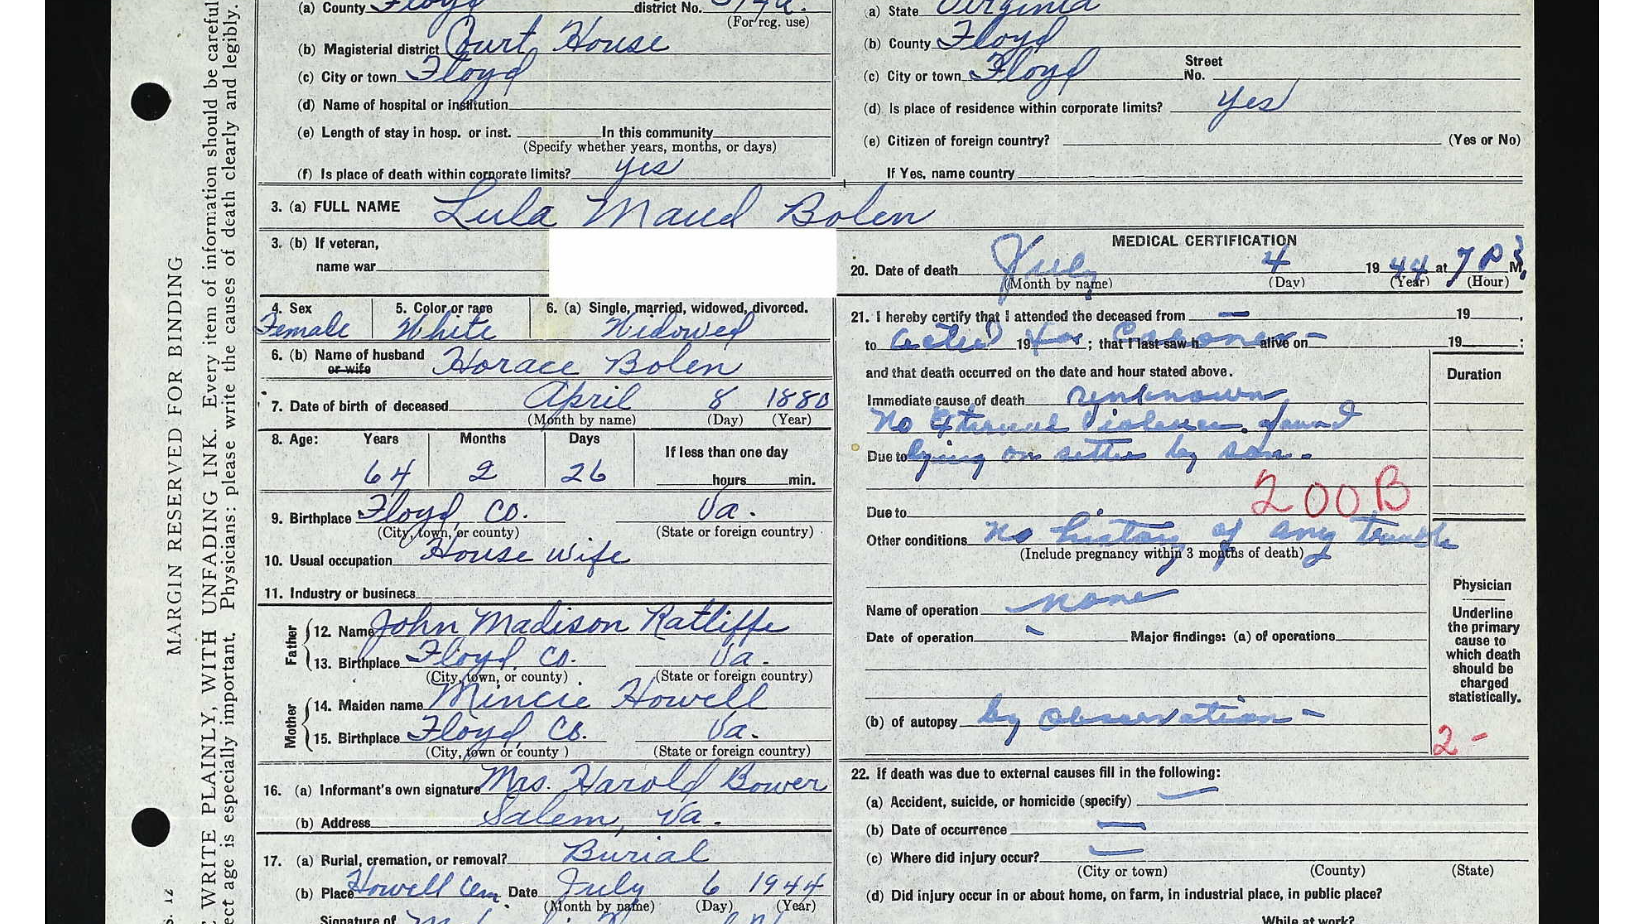 (a) County Floyd district No.
(For reg. use)
(b) Magisterial district Court House
(c) City or town Floyd
(d) Name of hospital or institution
(e) Length of stay in hosp. or inst. In this community
(Specify whether years, months, or days)
(f) Is place of death within corporate limits? yes
a) State Virginia
(b) County Floyd
(c) City or town Floyd Street No.
(d) Is place of residence within corporate limits? Yes
(e) Citizen of foreign country? (Yes or No)
If Yes, name country
3. (a) FULL NAME Lula Maud Bolen
3. (b) If veteran,
name war
4. Sex 5. Color or race 6. (a) Single, married, widowed, divorced.
Female White Widowed
6. (b) Name of husband or wife Horace Bolen
7. Date of birth of deceased April 8 1880
(Month by name) (Day) (Year)
8. Age: Years Months Days If less than one day
64 2 26 hours min.
9. Birthplace Floyd Co. Va.
(City, town, or county) (State or foreign country)
10. Usual occupation House wife
11. Industry or business
Father
12. Name John Madison Ratliffe
13. Birthplace Floyd Co. Va.
(City, town, or county) (State or foreign country)
Mother
14. Maiden name Mincie Howell
15. Birthplace Floyd Co. Va.
(City, town or county) (State or foreign country)
16. (a) Informant's own signature Mrs. Harold Bower
(b) Address Salem, Va.
17. (a) Burial, cremation, or removal? Burial
(b) Place Howell Cem. Date July 6 1944
(Month by name) (Day) (Year)
Signature of
MEDICAL CERTIFICATION
20. Date of death July 4 1944 at 7 P M,
(Month by name) (Day) (Year) (Hour)
21. I hereby certify that I attended the deceased from — 19 ,
to Acted 19 for Coroner ; that I last saw h alive on 19 ;
and that death occurred on the date and hour stated above.
Duration
Immediate cause of death unknown
No External violence. found
Due to lying on settie by son.
200B
Due to
Other conditions no history of any trouble
(Include pregnancy within 3 months of death)
Physician
Underline the primary cause to which death should be charged statistically.
Name of operation none
Date of operation Major findings: (a) of operations
(b) of autopsy by observation -
2 -
22. If death was due to external causes fill in the following:
(a) Accident, suicide, or homicide (specify) —
(b) Date of occurrence —
(c) Where did injury occur? —
(City or town) (County) (State)
(d) Did injury occur in or about home, on farm, in industrial place, in public place?
While at work?
MARGIN RESERVED FOR BINDING
WRITE PLAINLY, WITH UNFADING INK. Every item of information should be careful
ect age is especially important. Physicians: please write the causes of death clearly and legibly.